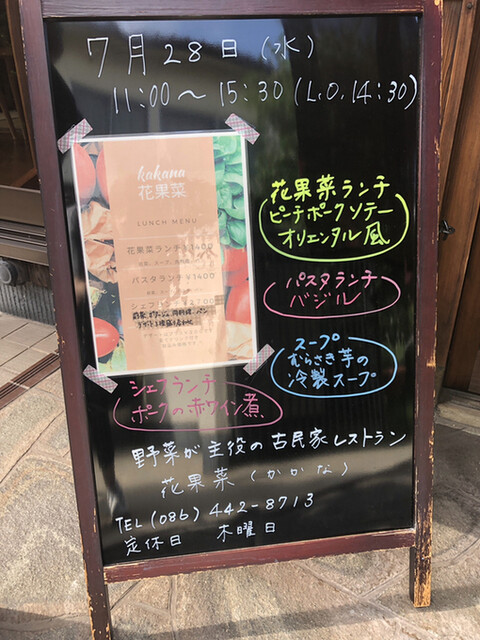 7月28日(水)
11:00〜15:30(L.O.14:30)
kakana
花果菜
LUNCH MENU
花果菜ランチ ¥1400
パスタランチ ¥1400
シェフランチ ¥2700
花果菜ランチ
ピーチポークソテー
オリエンタル風
パスタランチ
バジル
スープ
むらさき芋の
冷製スープ
シェフランチ
ポークの赤ワイン煮
野菜が主役の古民家レストラン
花果菜(かかな)
TEL(086)442-8713
定休日 木曜日